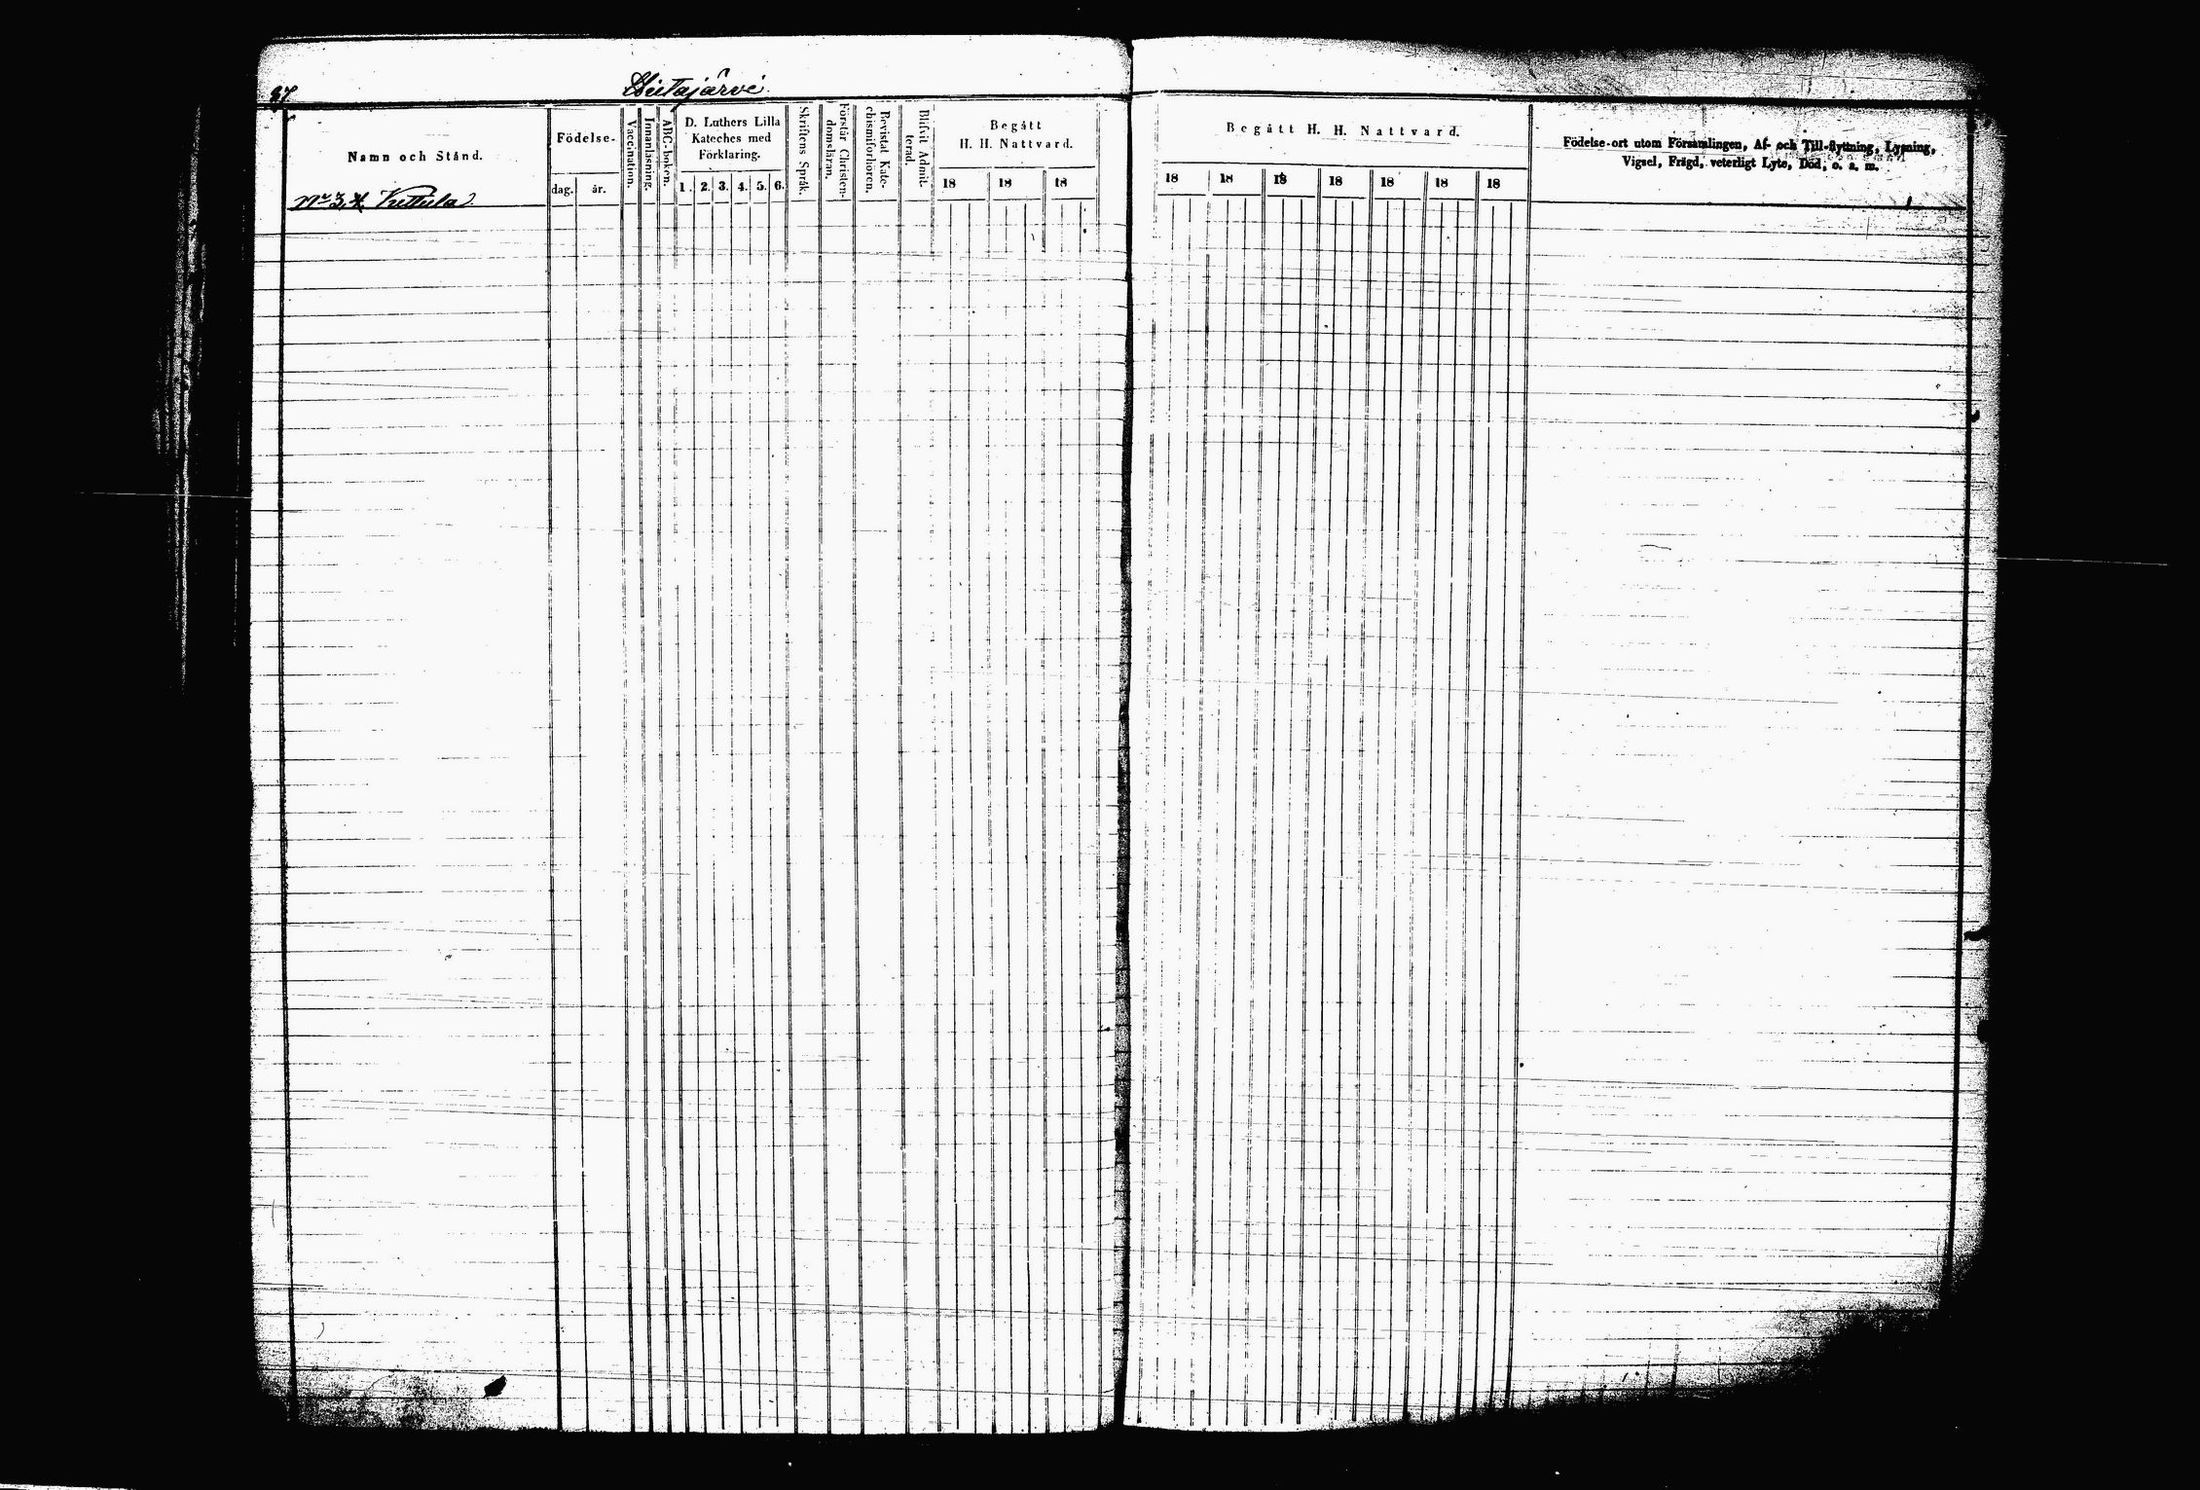 87
Hiitajärvi
Namn och Stånd.
Födelse-
dag.
år.
Vaccination.
Innanläsning.
ABC-boken.
D. Luthers Lilla
Kateches med
Förklaring.
1. 2. 3. 4. 5. 6.
Skriftens Språk.
Förstår Christen-
domsläran.
Bevistat Kate-
chismiförhören.
Blifvit Admit-
terad.
Begått
H. H. Nattvard.
18 18 18
Begått H. H. Nattvard.
18 18 18 18 18 18 18
Födelse-ort utom Församlingen, Af- och Till-flyttning, Lysning,
Vigsel, Frägd, veterligt Lyte, Död, o. s. m.
No 3.